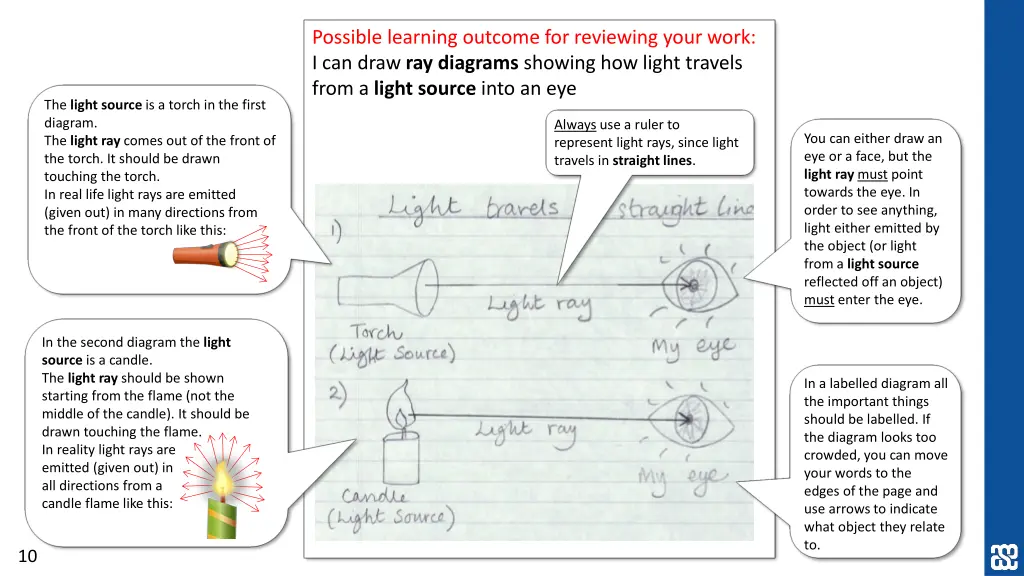 Possible learning outcome for reviewing your work:
I can draw ray diagrams showing how light travels
from a light source into an eye
The light source is a torch in the first
diagram.
The light ray comes out of the front of
the torch. It should be drawn
touching the torch.
In real life light rays are emitted
(given out) in many directions from
the front of the torch like this:
Always use a ruler to
represent light rays, since light
travels in straight lines.
You can either draw an
eye or a face, but the
light ray must point
towards the eye. In
order to see anything,
light either emitted by
the object (or light
from a light source
reflected off an object)
must enter the eye.
Light travels straight line
1)
Light ray
Torch
(Light Source)
My eye
In the second diagram the light
source is a candle.
The light ray should be shown
starting from the flame (not the
middle of the candle). It should be
drawn touching the flame.
In reality light rays are
emitted (given out) in
all directions from a
candle flame like this:
2)
Light ray
My eye
Candle
(Light Source)
In a labelled diagram all
the important things
should be labelled. If
the diagram looks too
crowded, you can move
your words to the
edges of the page and
use arrows to indicate
what object they relate
to.
10